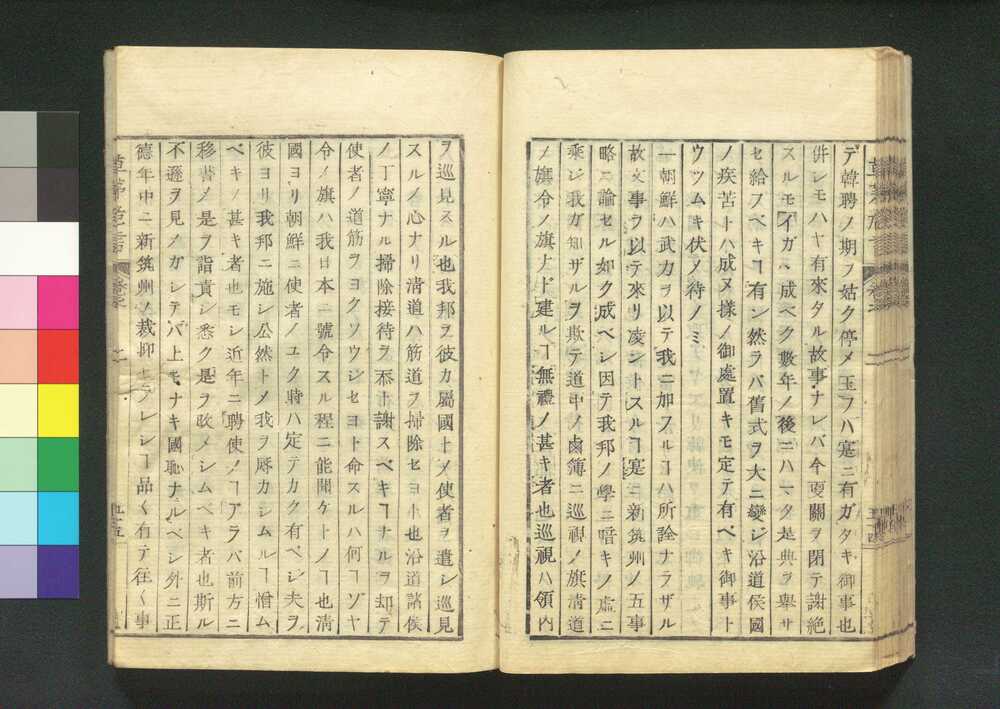 デ韓聘ノ期ヲ姑ク停メ玉フハ寔ニ有ガタキ御事也
併シモハヤ有來タル故事ナレバ今更關ヲ閉テ謝絶
スルモイカヾ成ベク數年ノ後ニハ一タ是典ヲ舉サ
セ給フベキヿ有ン然ラバ舊式ヲ大ニ變ジ沿道侯國
ノ疾苦トハ成ヌ様ノ御處置キモ定テ有ベキ御事ト
ウツムキ伏メ待ノミ
一朝鮮ハ武力ヲ以テ我ニ加フルヿハ所詮ナラザル
故文事ヲ以テ來リ凌ントスルヿ寔ニ新筑州ノ五事
略ニ論セル如ク成ベシ因テ我邦ノ學ニ暗キノ虚ニ
乘ジ我ガ知ザルヲ欺テ道中ノ鹵簿ニ巡視ノ旗淸道
ノ旗令ノ旗ナド建ルヿ無禮ノ甚キ者也巡視ハ領内
ヲ巡見スル也我邦ヲ彼カ屬國トメ使者ヲ遣シ巡見
スルノ心ナリ淸道ハ筋道ヲ掃除セヨト也沿道諸侯
ノ丁寧ナル掃除接待ヲ忝ト謝スベキヿナルヲ却テ
使者ノ道筋ヲヨクソウジセヨト命スルハ何ヿゾヤ
令ノ旗ハ我日本ニ號令スル程ニ能聞ケトノヿ也淸
國ヨリ朝鮮ニ使者ノユク時ハ定テカク有ベシ夫ヲ
彼ヨリ我邦ニ施シ公然トメ我ヲ辱カシムルヿ憎ム
ベキノ甚キ者也モシ近年ニ聘使ノヿアラバ前方ニ
移書メ是ヲ詣責シ悉ク是ヲ改メシムベキ者也斯ル
不遜ヲ見ノガシテハ上モナキ國恥ナルベシ外ニ正
德年中ニ新筑州ノ裁抑セラレシヿ品く有テ往く事